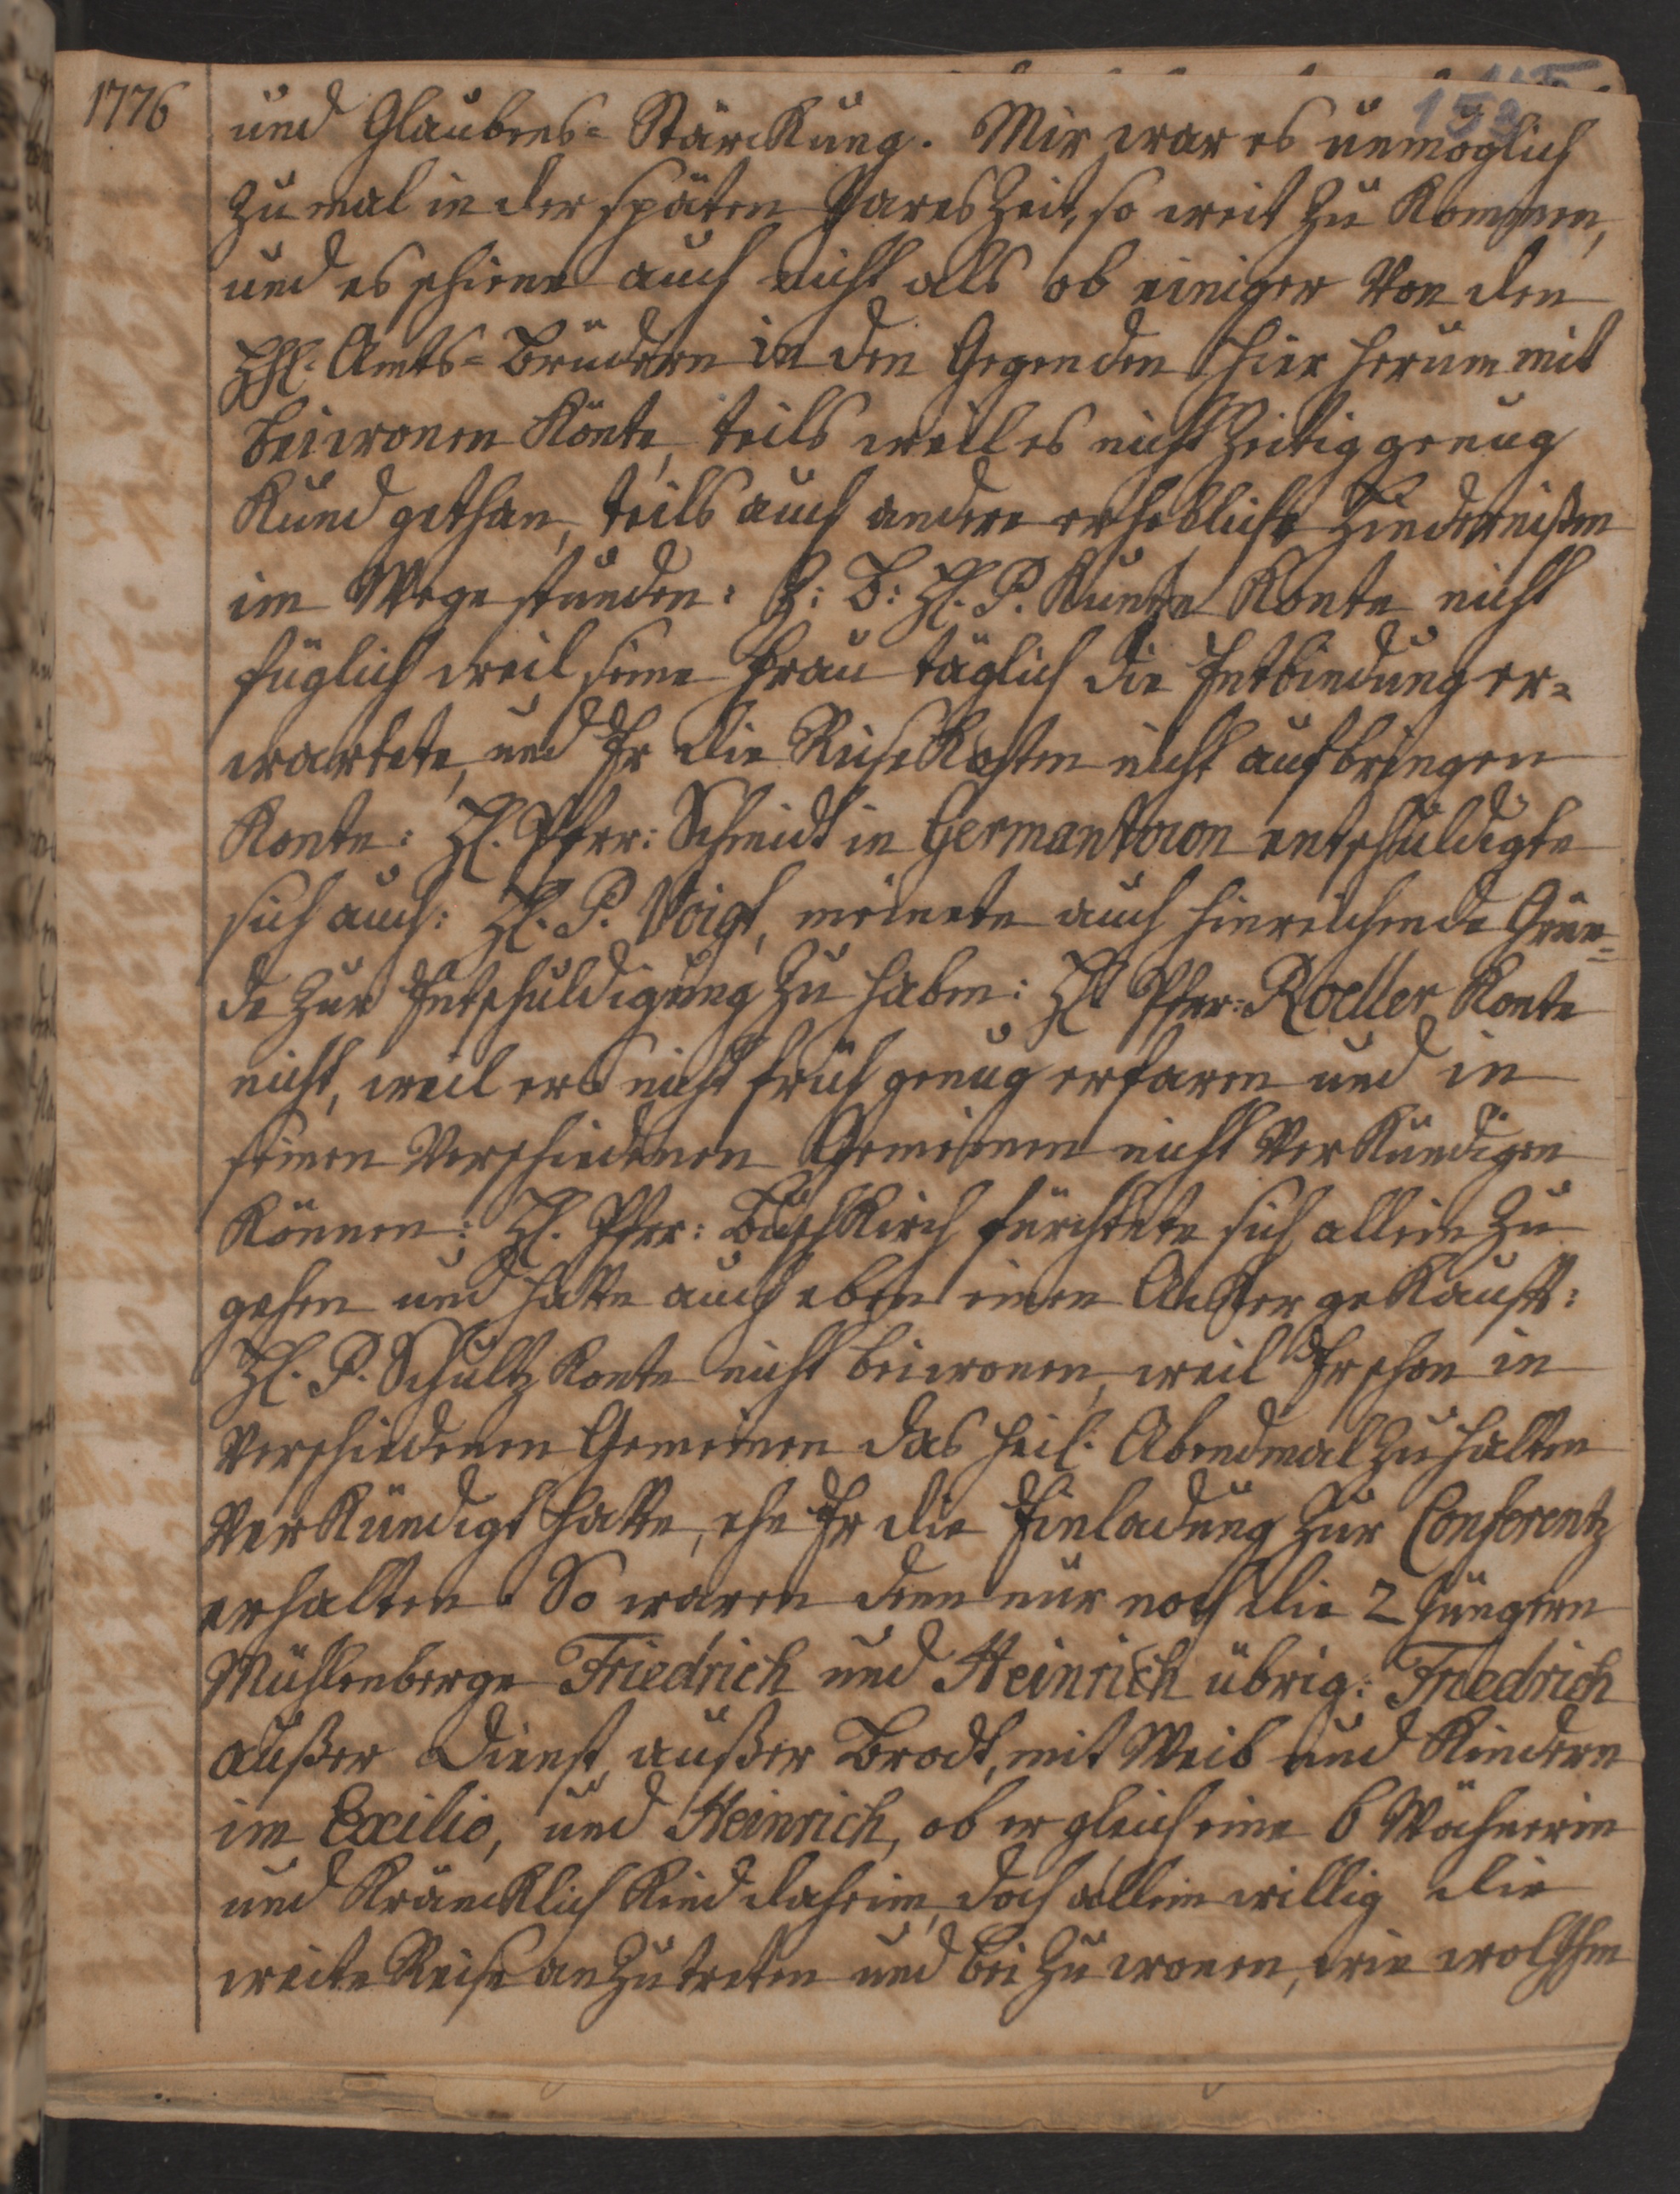 1776
153
und Glaubens= Stärckung. Mir war es unmöglich
zumal in der späten JaresZeit, so weit zu kommen,
und es schiene auch nicht als ob einiger von den
HhE. Amts=Brüdern in den Gegenden hier herum mit
beiwonen könte, teils weil es nicht zeitig genug
kund gethan, teils auch andere erhebliche Hindernißen
im Wege stunden: Z: B: HE. P. Kuntze konte nicht
füglich weil seine Frau täglich die Entbindung er=
wartete, und Er die ReiseKosten nicht aufbringen
konte: HE. Pfarr: Schmidt in Germantown entschuldigte
sich auch: HE. P. Voigt, meinete auch hinreichende Grün=
de zur Entschuldigung zu haben: HE Pfarr: Roeller konte
nicht, weil ers nicht früh genug erfaren und in
seinen verschiedenen Gemeinen nicht verkündigen
können: HE. Pfarr: Buschkirch fürchtete sich allein zu
gehen und hatte auch eben einen Acker gekauft:
HE. P. Schultz konte nicht beiwonen, weil Er schon in
verschiedenen Gemeinen das heil. Abendmal zu halten
verkündigt hatte, ehe Er die Einladung zur Conferentz
erhalten. So waren denn nur noch die 2 jüngern
Mühlenberge Friedrich und Heinrich übrig: Friedrich
außer Dienst, außer Brodt, mit Weib und Kindern
im Exilio, und Heinrich, ob er gleich eine 6 Wöchnerin
und kräncklich Kind daheim, doch allein willig die
weite Reise anzutreten und bei zu wonen, wie wol Ihm